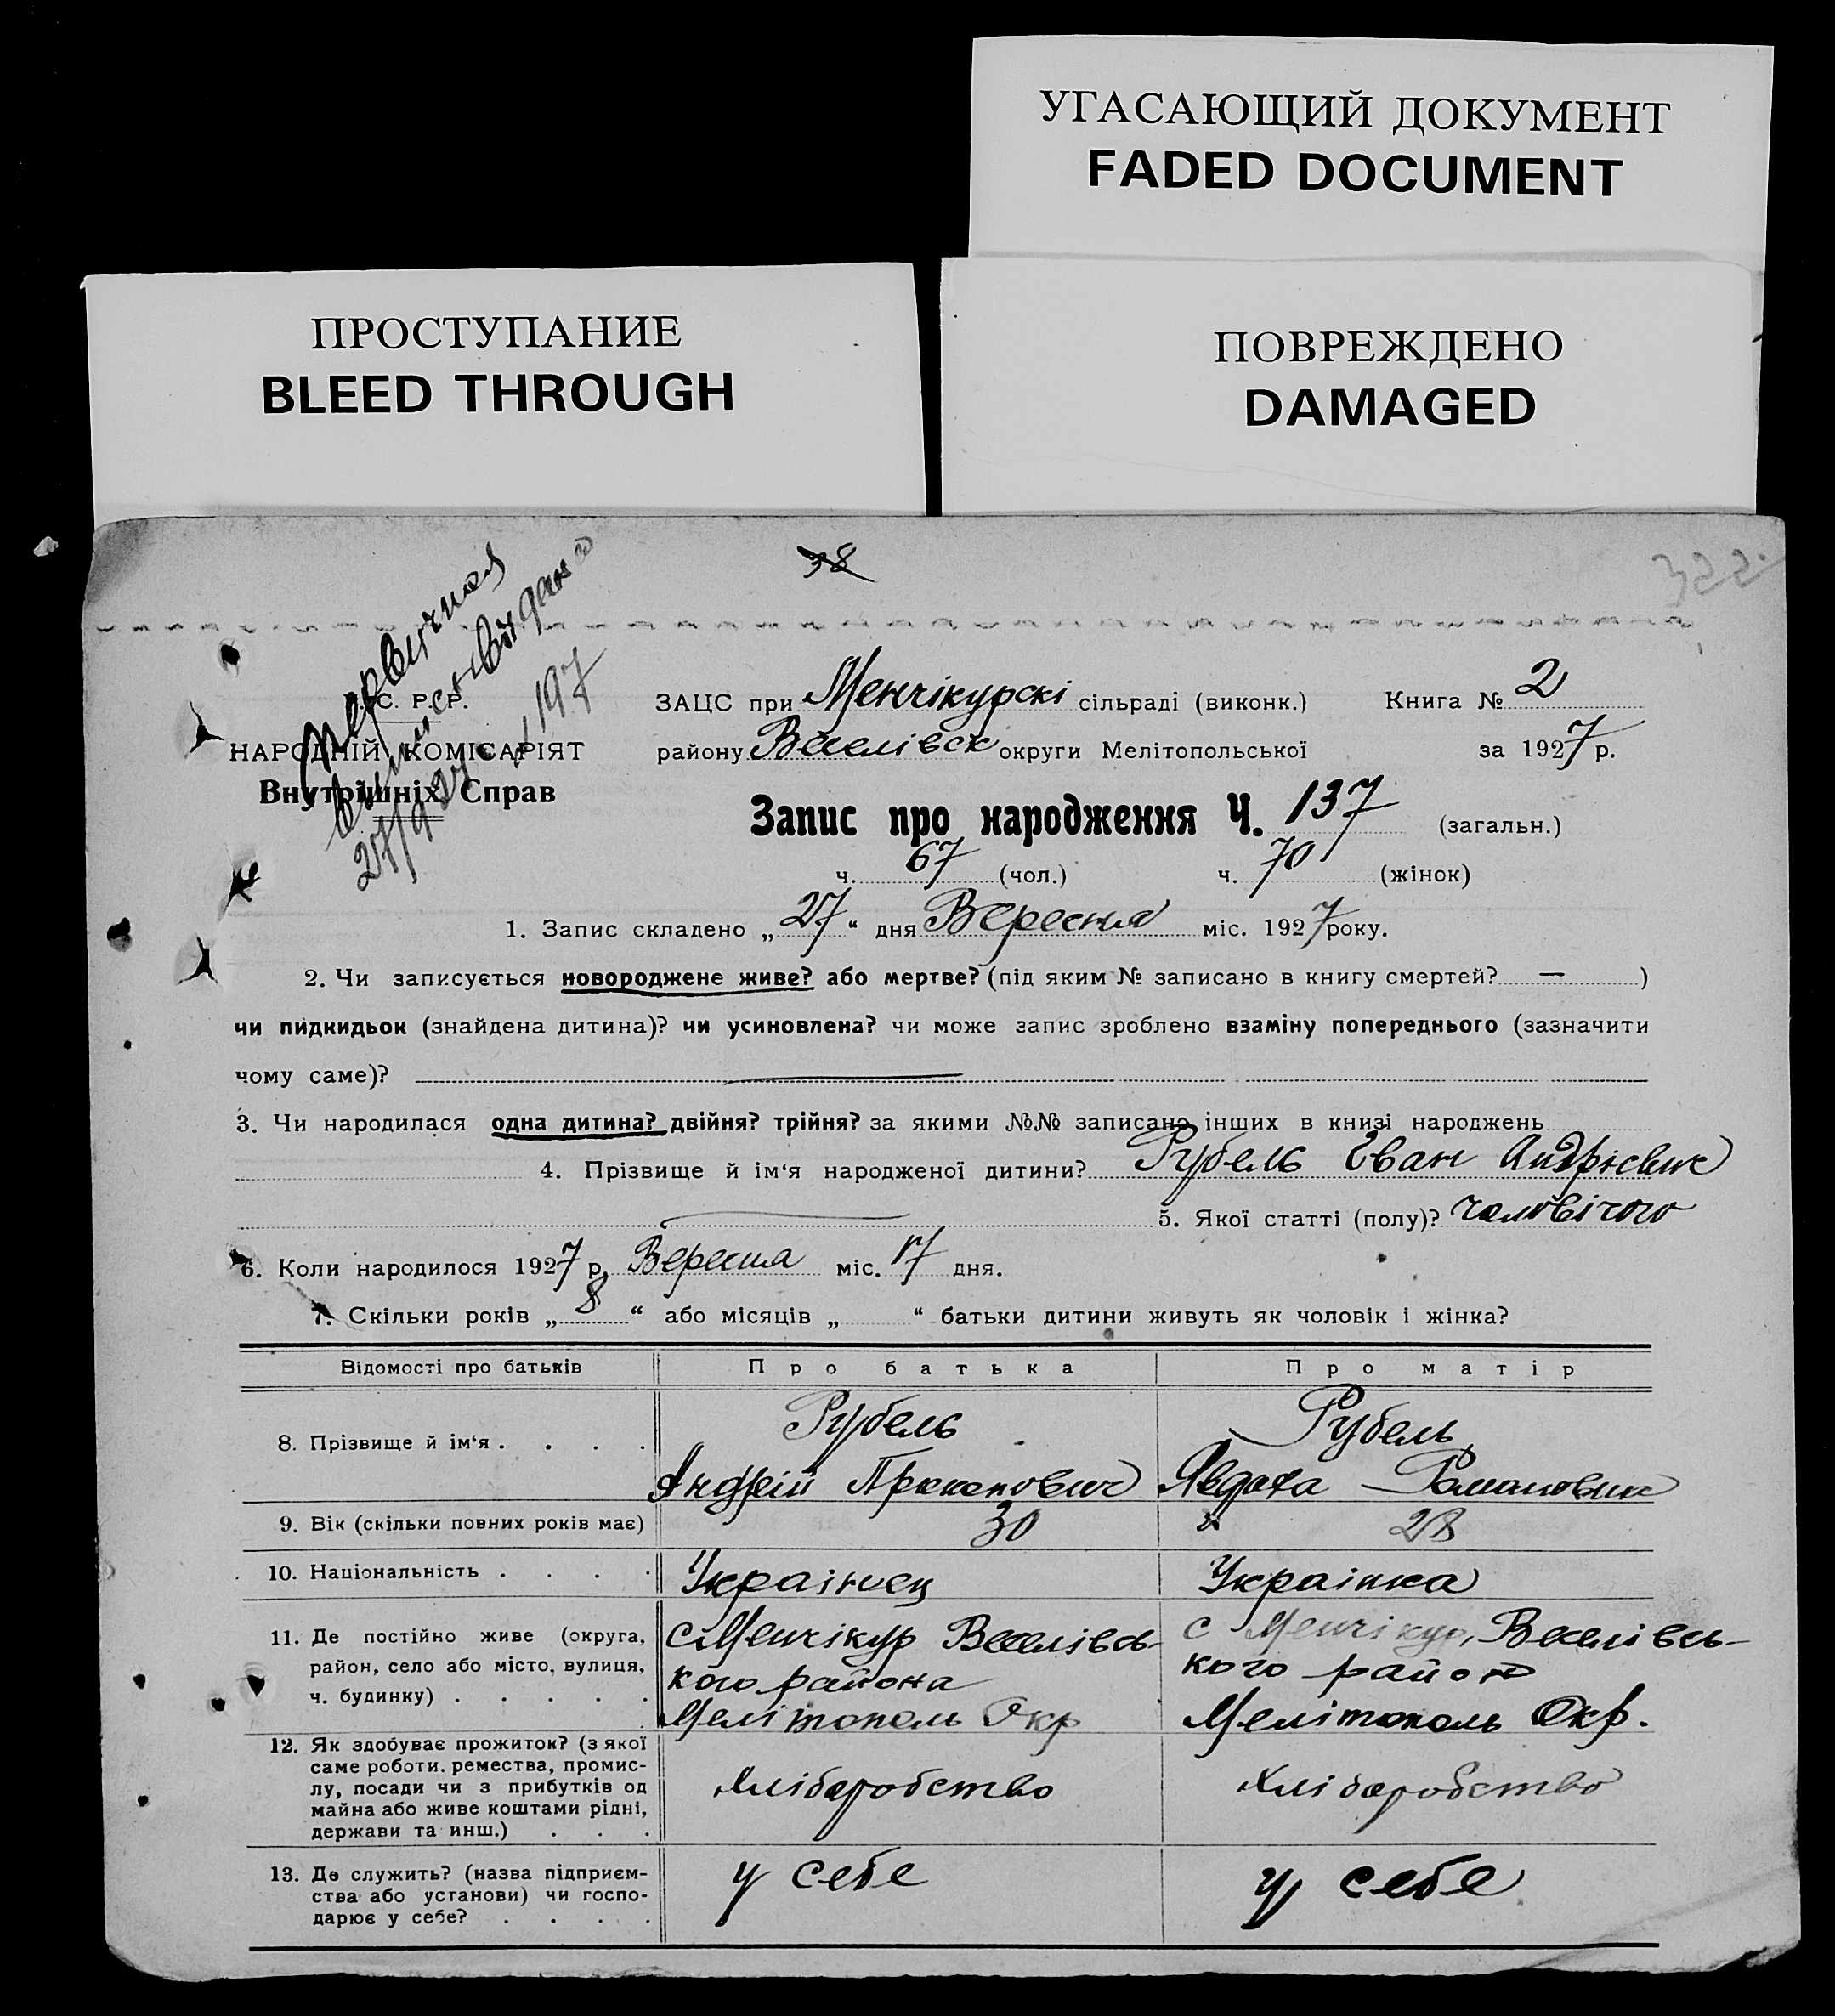 УГАСАЮЩИЙ ДОКУМЕНТ
FADED DOCUMENT
ПРОСТУПАНИЕ
BLEED THROUGH
ПОВРЕЖДЕНО
DAMAGED
38
322
Первичная
выпись выдано
27/9 27 197
С. Р. Р.
НАРОДНІЙ КОМІСАРІЯТ
Внутрішніх Справ
ЗАЦС при Менчікурскі сільраді (виконк.) Книга № 2
району Веселівск округи Мелітопольської за 1927 р.
Запис про народження Ч. 137 (загальн.)
ч. 67 (чол.) ч. 70 (жінок)
1. Запис складено „ 27 “ дня Вересня міс. 1927 року.
2. Чи записується новороджене живе? або мертве? (під яким № записано в книгу смертей? — )
чи пидкидьок (знайдена дитина)? чи усиновлена? чи може запис зроблено взаміну попереднього (зазначити
чому саме)?
3. Чи народилася одна дитина? двійня? трійня? за якими №№ записано інших в книзі народжень
4. Прізвище й ім‘я народженої дитини? Рубель Іван Андрієвич
5. Якої статті (полу)? чоловічого
6. Коли народилося 1927 р. Вересня міс. 17 дня.
7. Скільки років „ 8 “ або місяців „ “ батьки дитини живуть як чоловік і жінка?
Відомості про батьків Про батька Про матір
8. Прізвище й ім‘я . . . . Рубель Рубель
Андрій Прокопович Явдоха Романовна
9. Вік (скільки повних років має) 30 28
10. Національність . . . . Українец Українка
11. Де постійно живе (округа, с Менчікур Веселівсь- с Менчікур, Веселівсь-
район, село або місто, вулиця, кого района кого район
ч. будинку) . . . . . Мелітополь Окр Мелітополь Окр.
12. Як здобуває прожиток? (з якої
саме роботи, ремества, промис-
лу, посади чи з прибутків од Хліборобство Хліборобство
майна або живе коштами рідні,
держави та инш.) . . .
13. Де служить? (назва підприєм- у себе у себе
ства або установи) чи госпо-
дарює у себе? . . . .